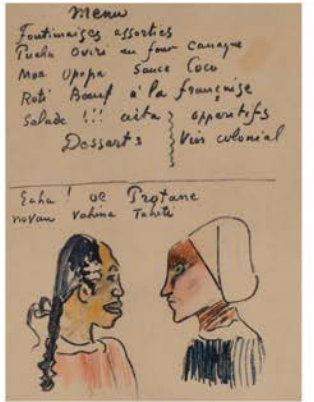 Menu
Foutimaises assorties
Puaha Oviri au four canaque
Moa Opopa Sauce Coco
Roti Bœuf à la française
Salade !!! aita
Desserts
apperitifs
Vin colonial
Eaha ! oe Protane
novau Vahina Tahiti